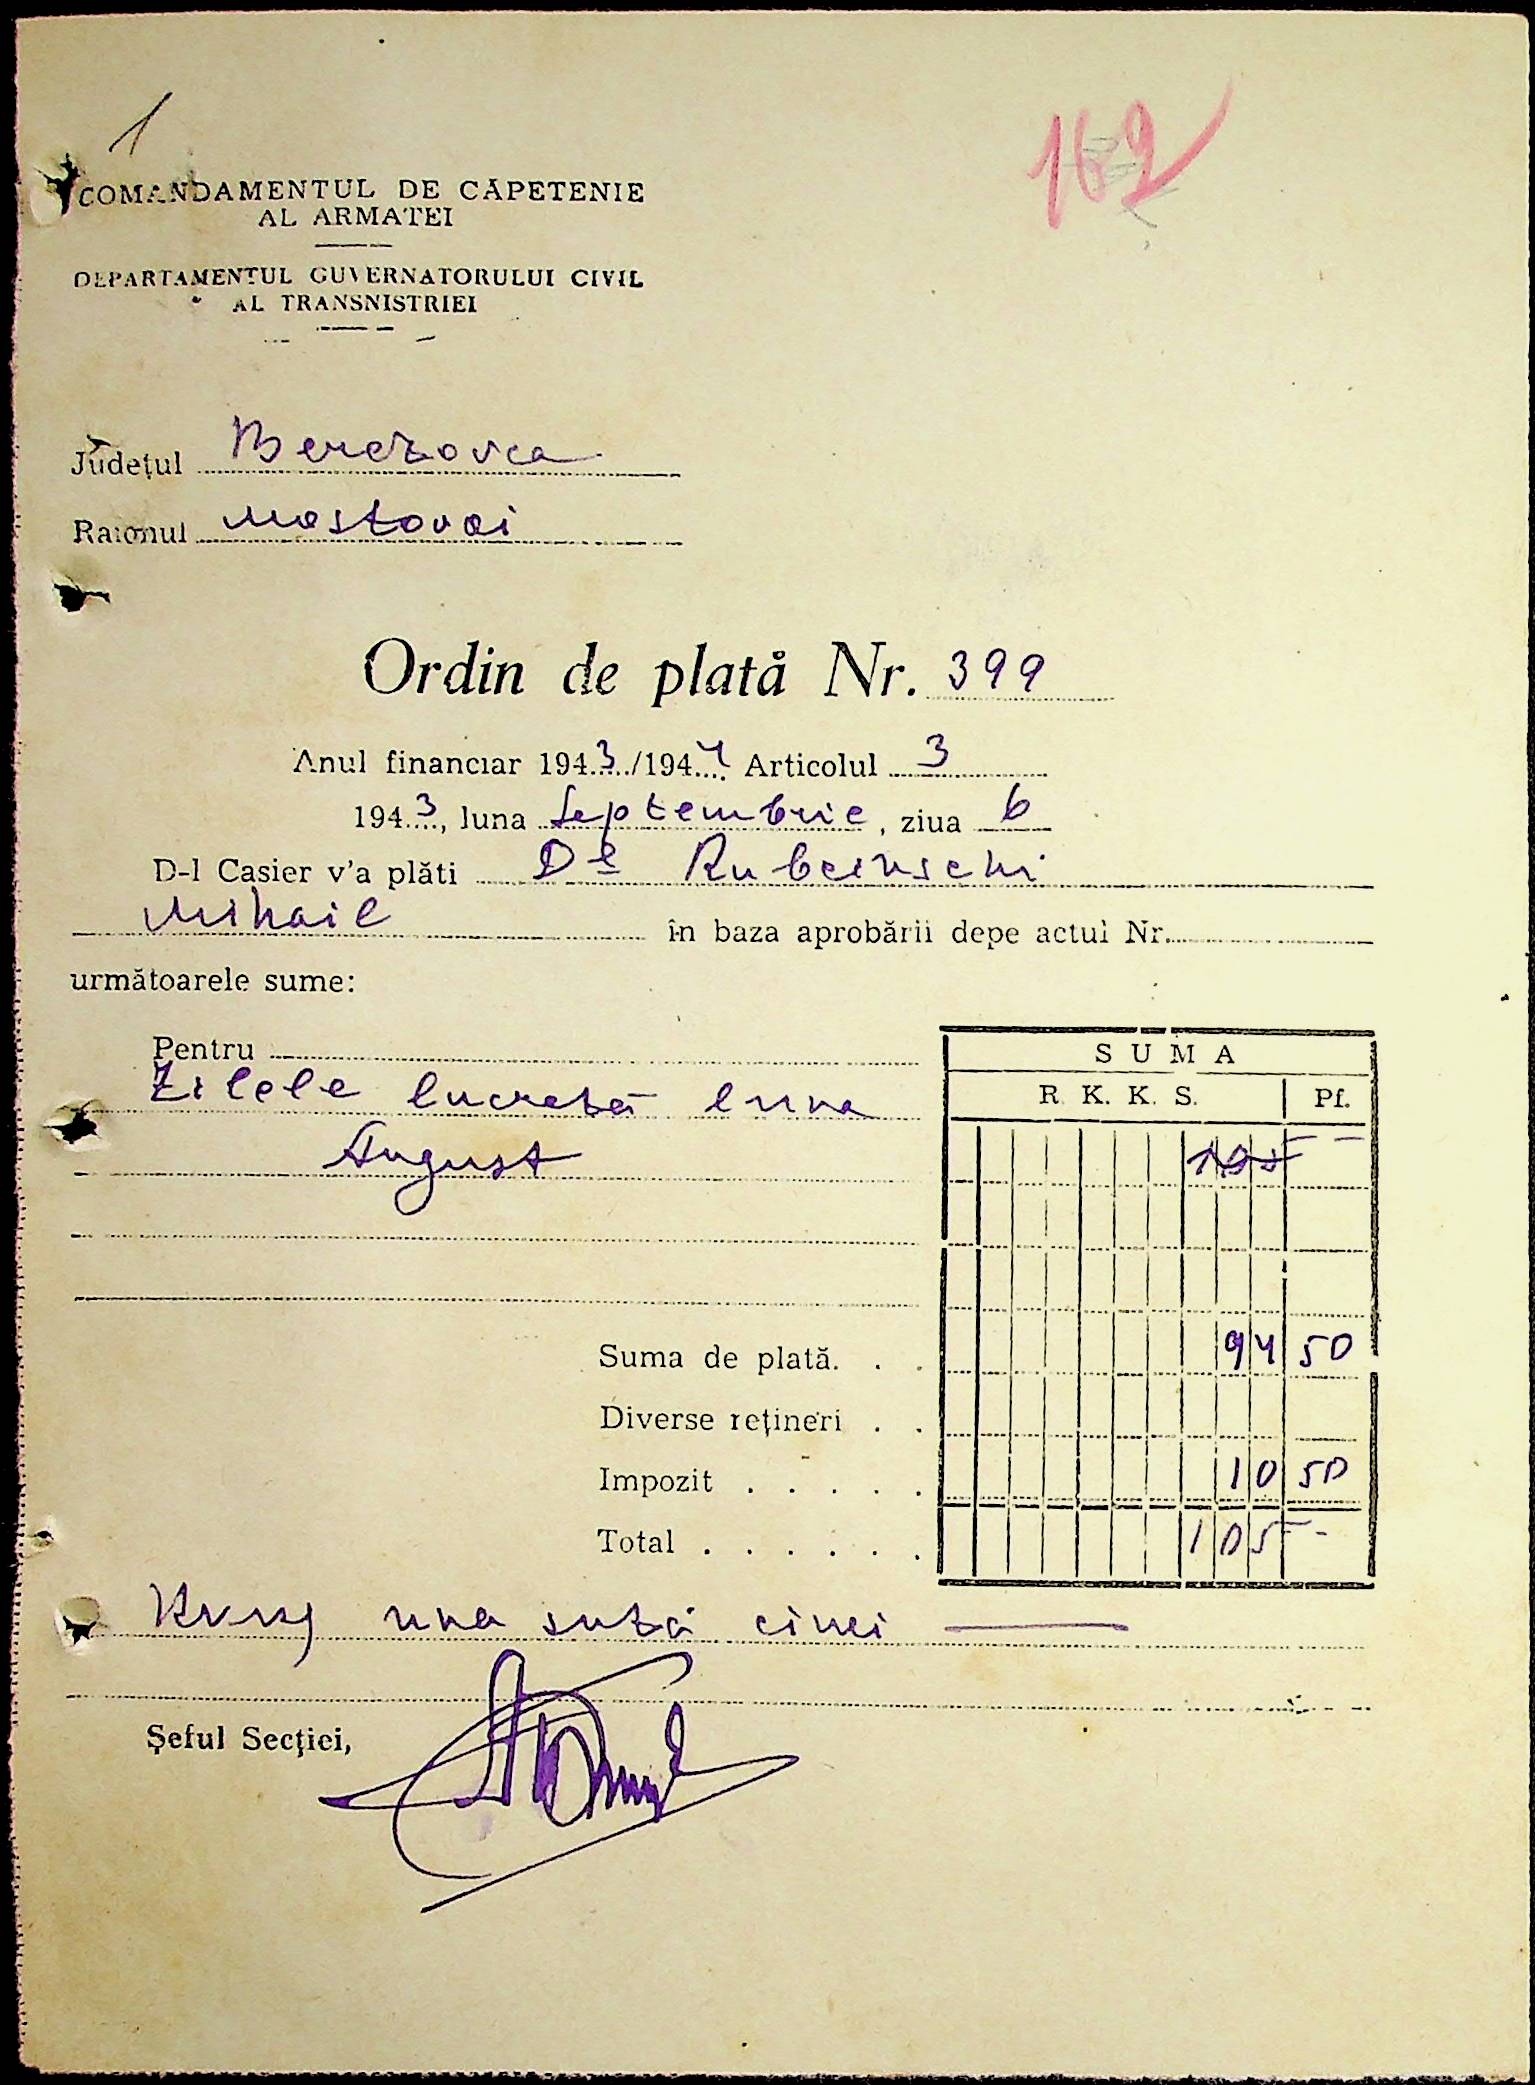 1
162
COMANDAMENTUL DE CĂPETENIE
AL ARMATEI
DEPARTAMENTUL GUVERNATORULUI CIVIL
AL TRANSNISTRIEI
Județul Berezovca
Raionul Mostovoi
Ordin de plată Nr. 399
Anul financiar 1943/1944 Articolul 3
1943, luna Septembrie, ziua 6
D-l Casier v'a plăti Dl Rubeinschi
Mihail în baza aprobării depe actul Nr.
următoarele sume:
Pentru
Zilele lucrată luna
August
SUMA
R. K. K. S. Pf.
105 -
Suma de plată. . . 94 50
Diverse rețineri . .
Impozit . . . . . 10 50
Total . . . . . . 105 -
una sută cinci
Șeful Secției,